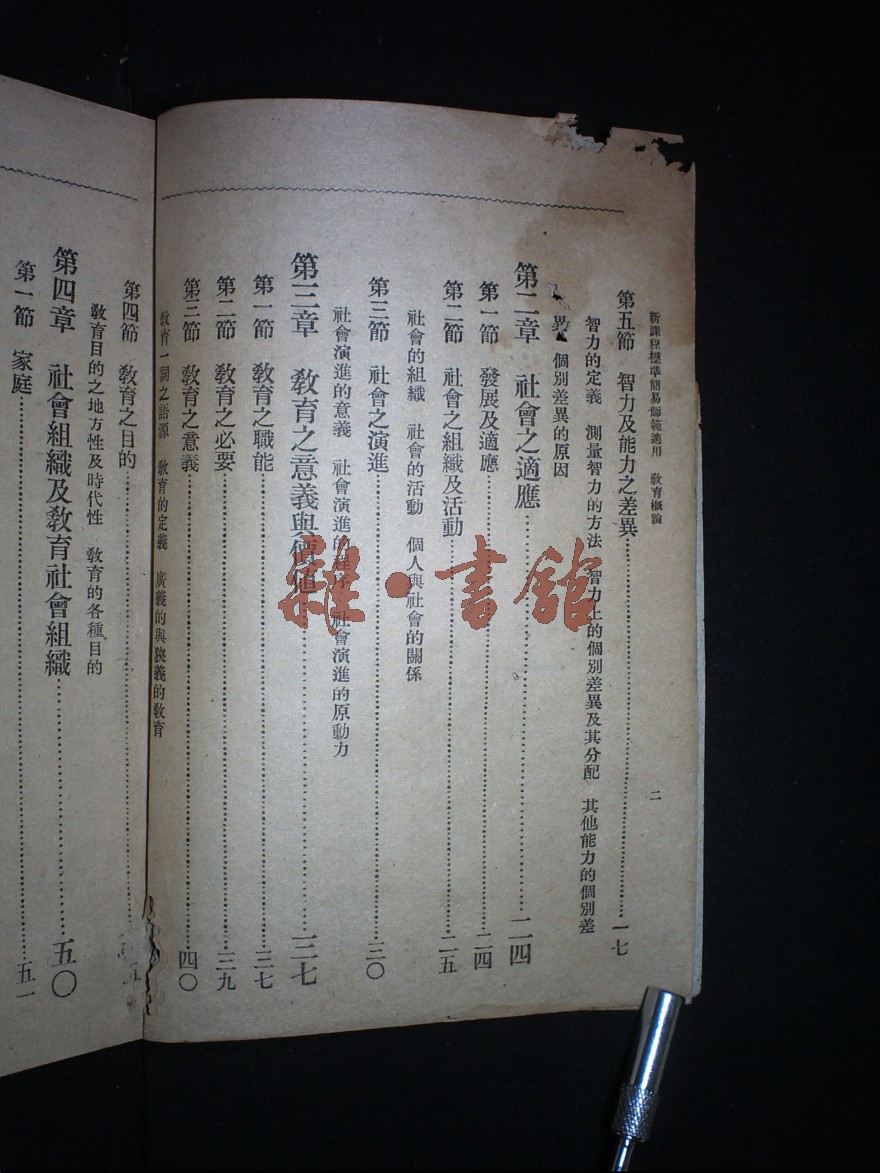 新課程標準簡易師範適用　教育概論
二
第五節　智力及能力之差異……一七
智力的定義　測量智力的方法　智力上的個別差異及其分配　其他能力的個別差
異　個別差異的原因
第二章　社會之適應……二四
第一節　發展及適應……二四
第二節　社會之組織及活動……二五
社會的組織　社會的活動　個人與社會的關係
第三節　社會之演進……三〇
社會演進的意義　社會演進的程序　社會演進的原動力
第三章　教育之意義與價值……三七
第一節　教育之職能……三七
第二節　教育之必要……三九
第三節　教育之意義……四〇
教育一詞之語源　教育的定義　廣義的與狹義的教育
第四節　教育之目的……
教育目的之地方性及時代性　教育的各種目的
第四章　社會組織及教育社會組織……五〇
第一節　家庭……五一
雜·書館